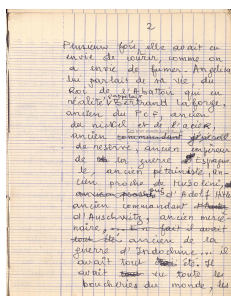 2
Plusieurs fois, elle avait eu
envie de courir, comme on
a envie de fumer. Angelica
lui parlait de sa vie du
Roi de l'Abattoir qui en
réalité s'appelait Bertrand Laforge,
ancien du P.C.F, ancien
du nickel et de l'acier,
ancien commandant
de réserve, ancien empereur
de la guerre d'Espagne
le, ancien pétainiste, an-
cien proche de Mussolini,
d'Adolf
ancien commandant
d'Auschwitz, ancien merce-
naire, En fait il avait
ancien de la
guerre d'Indochine... il
avait tout été. Il
avait vu toute les
boucheries du monde, les